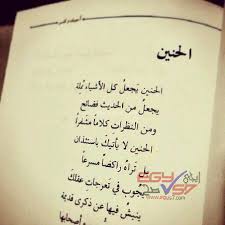 الحنين
الحنين يجعل كل الأشياء مملة
يجعل من الحديث فضائح
ومن النظرات كلاماً مشفرا
الحنين لا يأتيك باستئذان
بل تراه راكضاً مسرعاً
يجوب في تعرجات عقلك
ينبش فيها عن ذكرى قديمة
أصحابها
EGY
V97
www.egys7.com